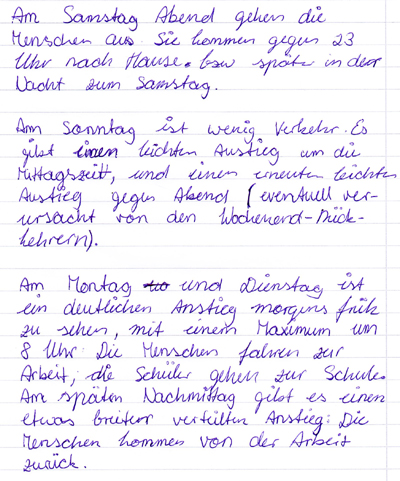 Am Samstag Abend gehen die
Menschen aus. Sie kommen gegen 23
Uhr nach Hause. bzw später in der
Nacht zum Samstag.
Am Sonntag ist wenig Verkehr. Es
gibt einen leichten Anstieg um die
Mittagszeit, und einen erneuten leichten
Anstieg gegen Abend (eventuell ver-
ursacht von den Wochenend-Rück-
kehrern).
Am Montag und Dienstag ist
ein deutlichen Anstieg morgens früh
zu sehen, mit einem Maximum um
8 Uhr: Die Menschen fahren zur
Arbeit, die Schüler gehen zur Schule.
Am späten Nachmittag gibt es einen
etwas breiter verteilten Anstieg: Die
Menschen kommen von der Arbeit
zurück.